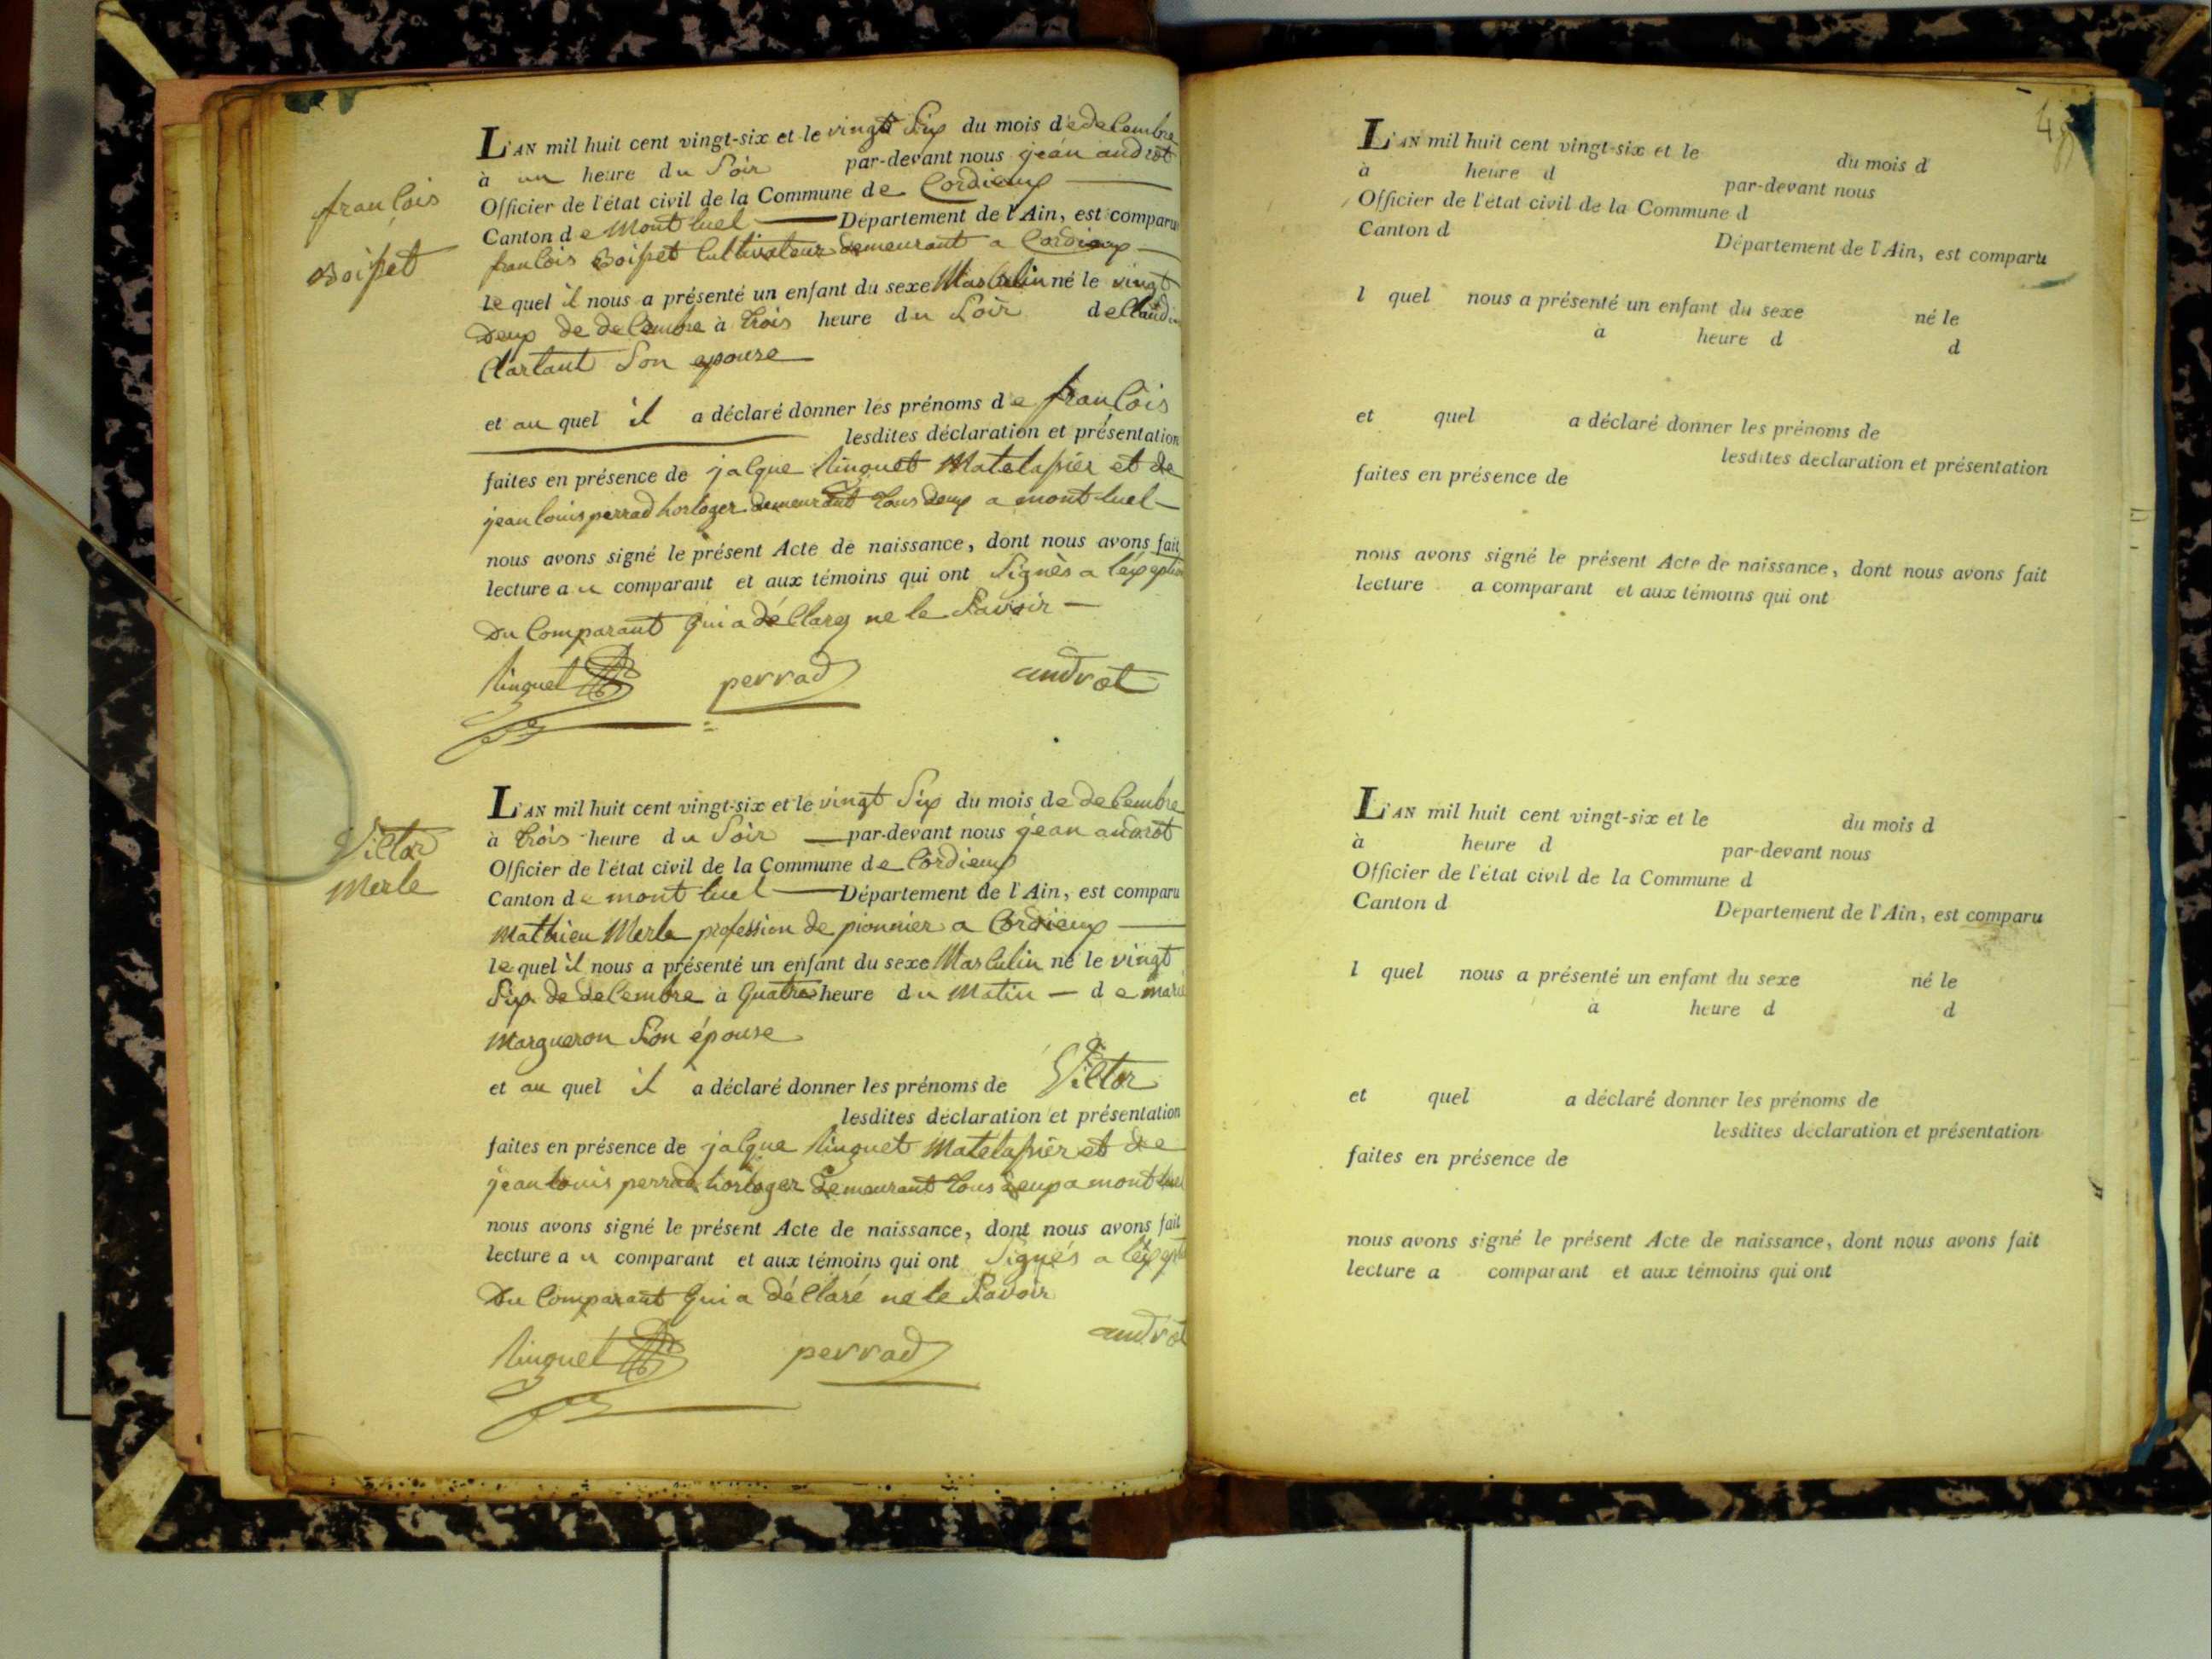 françois
Boisset
L'AN mil huit cent vingt-six et le vingt Six du mois de decembre
à un heure du Soir par-devant nous jean androt
Officier de l'état civil de la Commune de Cordieux
Canton de Montluel Département de l'Ain, est comparu
françois Boisset Cultivateur demeurant a Cordieux
le quel il nous a présenté un enfant du sexe Masculin né le vingt
Deux de decembre à trois heure du Soir de Claudi
Clartant Son epouse
et au quel il a déclaré donner les prénoms de françois
lesdites déclaration et présentation
faites en présence de jacque linguet Matelassier et de
jean louis perrad horloger demeurant tous deux a mont luel
nous avons signé le présent Acte de naissance, dont nous avons fait
lecture au comparant et aux témoins qui ont Signès a l'exeption
Du Comparant qui a déclarez ne le Savoir
linguet perrad androt
Victor
Merle
L'AN mil huit cent vingt-six et le vingt Six du mois de decembre
à trois heure du Soir par-devant nous jean androt
Officier de l'état civil de la Commune de Cordieux
Canton de mont luel Département de l'Ain, est comparu
Mathieu Merle profession de pionnier a Cordieux
le quel il nous a présenté un enfant du sexe Masculin né le vingt
Six de decembre à quatre heure du Matin de marie
Margueron Son épouse
et au quel il a déclaré donner les prénoms de Victor
lesdites déclaration et présentation
faites en présence de jacque linguet Matelassier et de
jean louis perrad horloger demeurant tous deux a mont luel
nous avons signé le présent Acte de naissance, dont nous avons fait
lecture au comparant et aux témoins qui ont Signés a l'exeptio
Du Comparant qui a déclaré ne le Savoir
linguet perrad androt
L'AN mil huit cent vingt-six et le du mois d
à heure d par-devant nous
Officier de l'état civil de la Commune d
Canton d Département de l'Ain, est comparu
l quel nous a présenté un enfant du sexe né le
à heure d d
et quel a déclaré donner les prénoms de
lesdites déclaration et présentation
faites en présence de
nous avons signé le présent Acte de naissance, dont nous avons fait
lecture a comparant et aux témoins qui ont
L'AN mil huit cent vingt-six et le du mois d
à heure d par-devant nous
Officier de l'état civil de la Commune d
Canton d Département de l'Ain, est comparu
l quel nous a présenté un enfant du sexe né le
à heure d d
et quel a déclaré donner les prénoms de
lesdites déclaration et présentation
faites en présence de
nous avons signé le présent Acte de naissance, dont nous avons fait
lecture a comparant et aux témoins qui ont